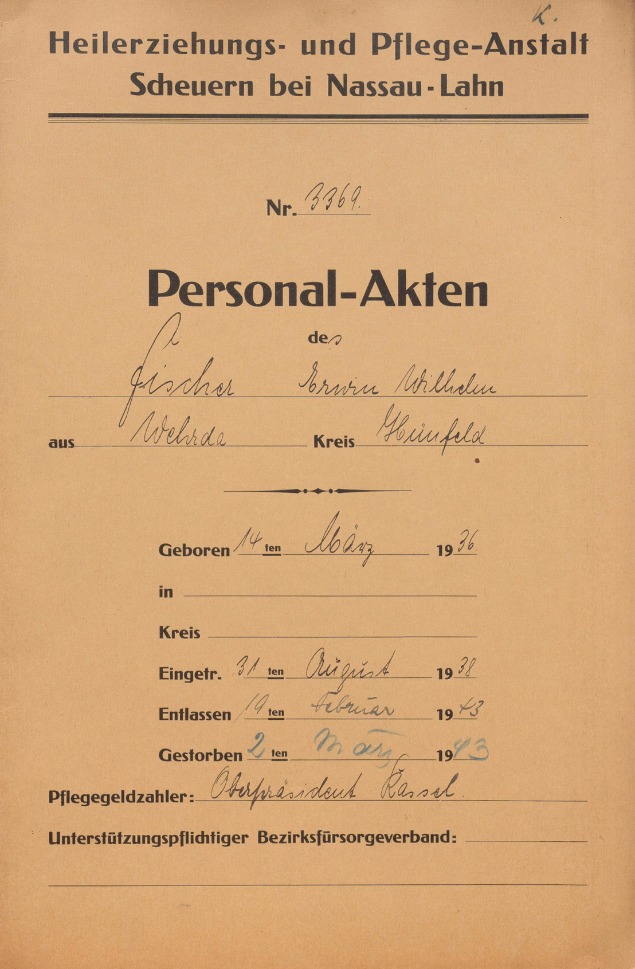 K.
Heilerziehungs- und Pflege-Anstalt
Scheuern bei Nassau-Lahn
Nr. 3369.
Personal-Akten
des
Fischer Erwin Wilhelm
aus Wehrda Kreis Hünfeld
Geboren 14 ten März 1936
in
Kreis
Eingetr. 31 ten August 1938
Entlassen 19 ten Februar 1943
Gestorben 2 ten März 1943
Pflegegeldzahler: Oberpräsident Kassel.
Unterstützungspflichtiger Bezirksfürsorgeverband: